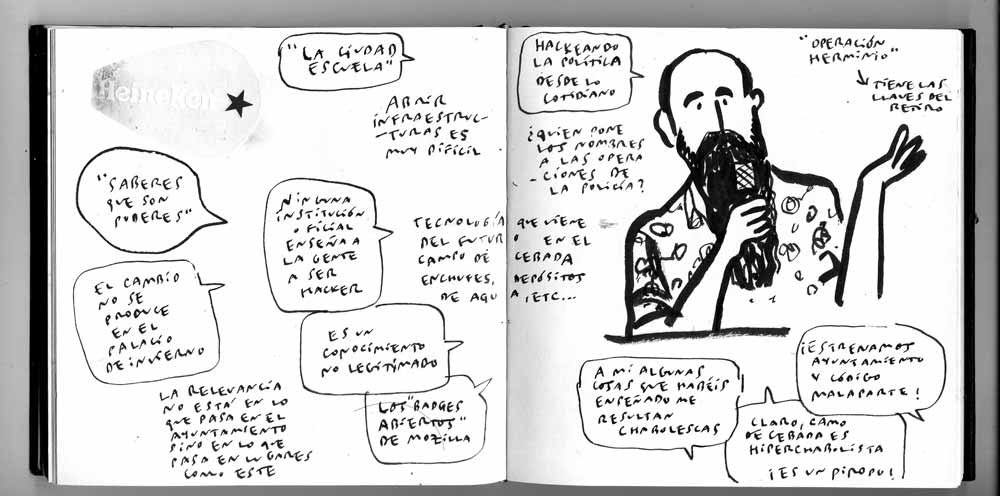 Heineken
"LA CIUDAD
ESCUELA"
ABRIR
INFRAESTRUC-
-TURAS ES
MUY DIFÍCIL
"SABERES
QUE SON
PODERES"
NINGUNA
INSTITUCIÓN
OFICIAL
ENSEÑA A
LA GENTE
A SER
HACKER
TECNOLOGÍA QUE VIENE
DEL FUTURO EN EL
CAMPO DE CEBADA
ENCHUFES, DEPÓSITOS
DE AGUA, ETC...
EL CAMBIO
NO SE
PRODUCE
EN EL
PALACIO
DE INVIERNO
ES UN
CONOCIMIENTO
NO LEGITIMADO
LOS "BADGES
ABIERTOS"
DE MOZILLA
LA RELEVANCIA
NO ESTÁ EN LO
QUE PASA EN EL
AYUNTAMIENTO
SINO EN LO QUE
PASA EN LUGARES
COMO ESTE
HACKEANDO
LA POLÍTICA
DESDE LO
COTIDIANO
¿QUIEN PONE
LOS NOMBRES
A LAS OPERA
-CIONES DE
LA POLICÍA?
"OPERACIÓN
HERMINIO"
TIENE LAS
LLAVES DEL
RETIRO
A MI ALGUNAS
COSAS QUE HABÉIS
ENSEÑADO ME
RESULTAN
CHABOLESCAS
¡ESTRENAMOS
AYUNTAMIENTO
Y CÓDIGO
MALAPARTE!
CLARO, CAMPO
DE CEBADA ES
HIPERCHABOLISTA
¡ES UN PIROPO!